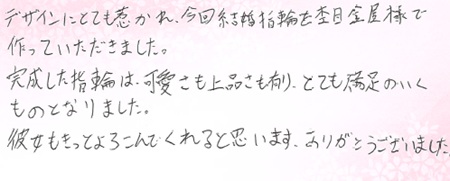 デザインにとても惹かれ、今回結婚指輪を杢目金屋様で
作っていただきました。
完成した指輪は、可愛さも上品さも有り、とても満足のいく
ものとなりました。
彼女もきっとよろこんでくれると思います、ありがとうございました